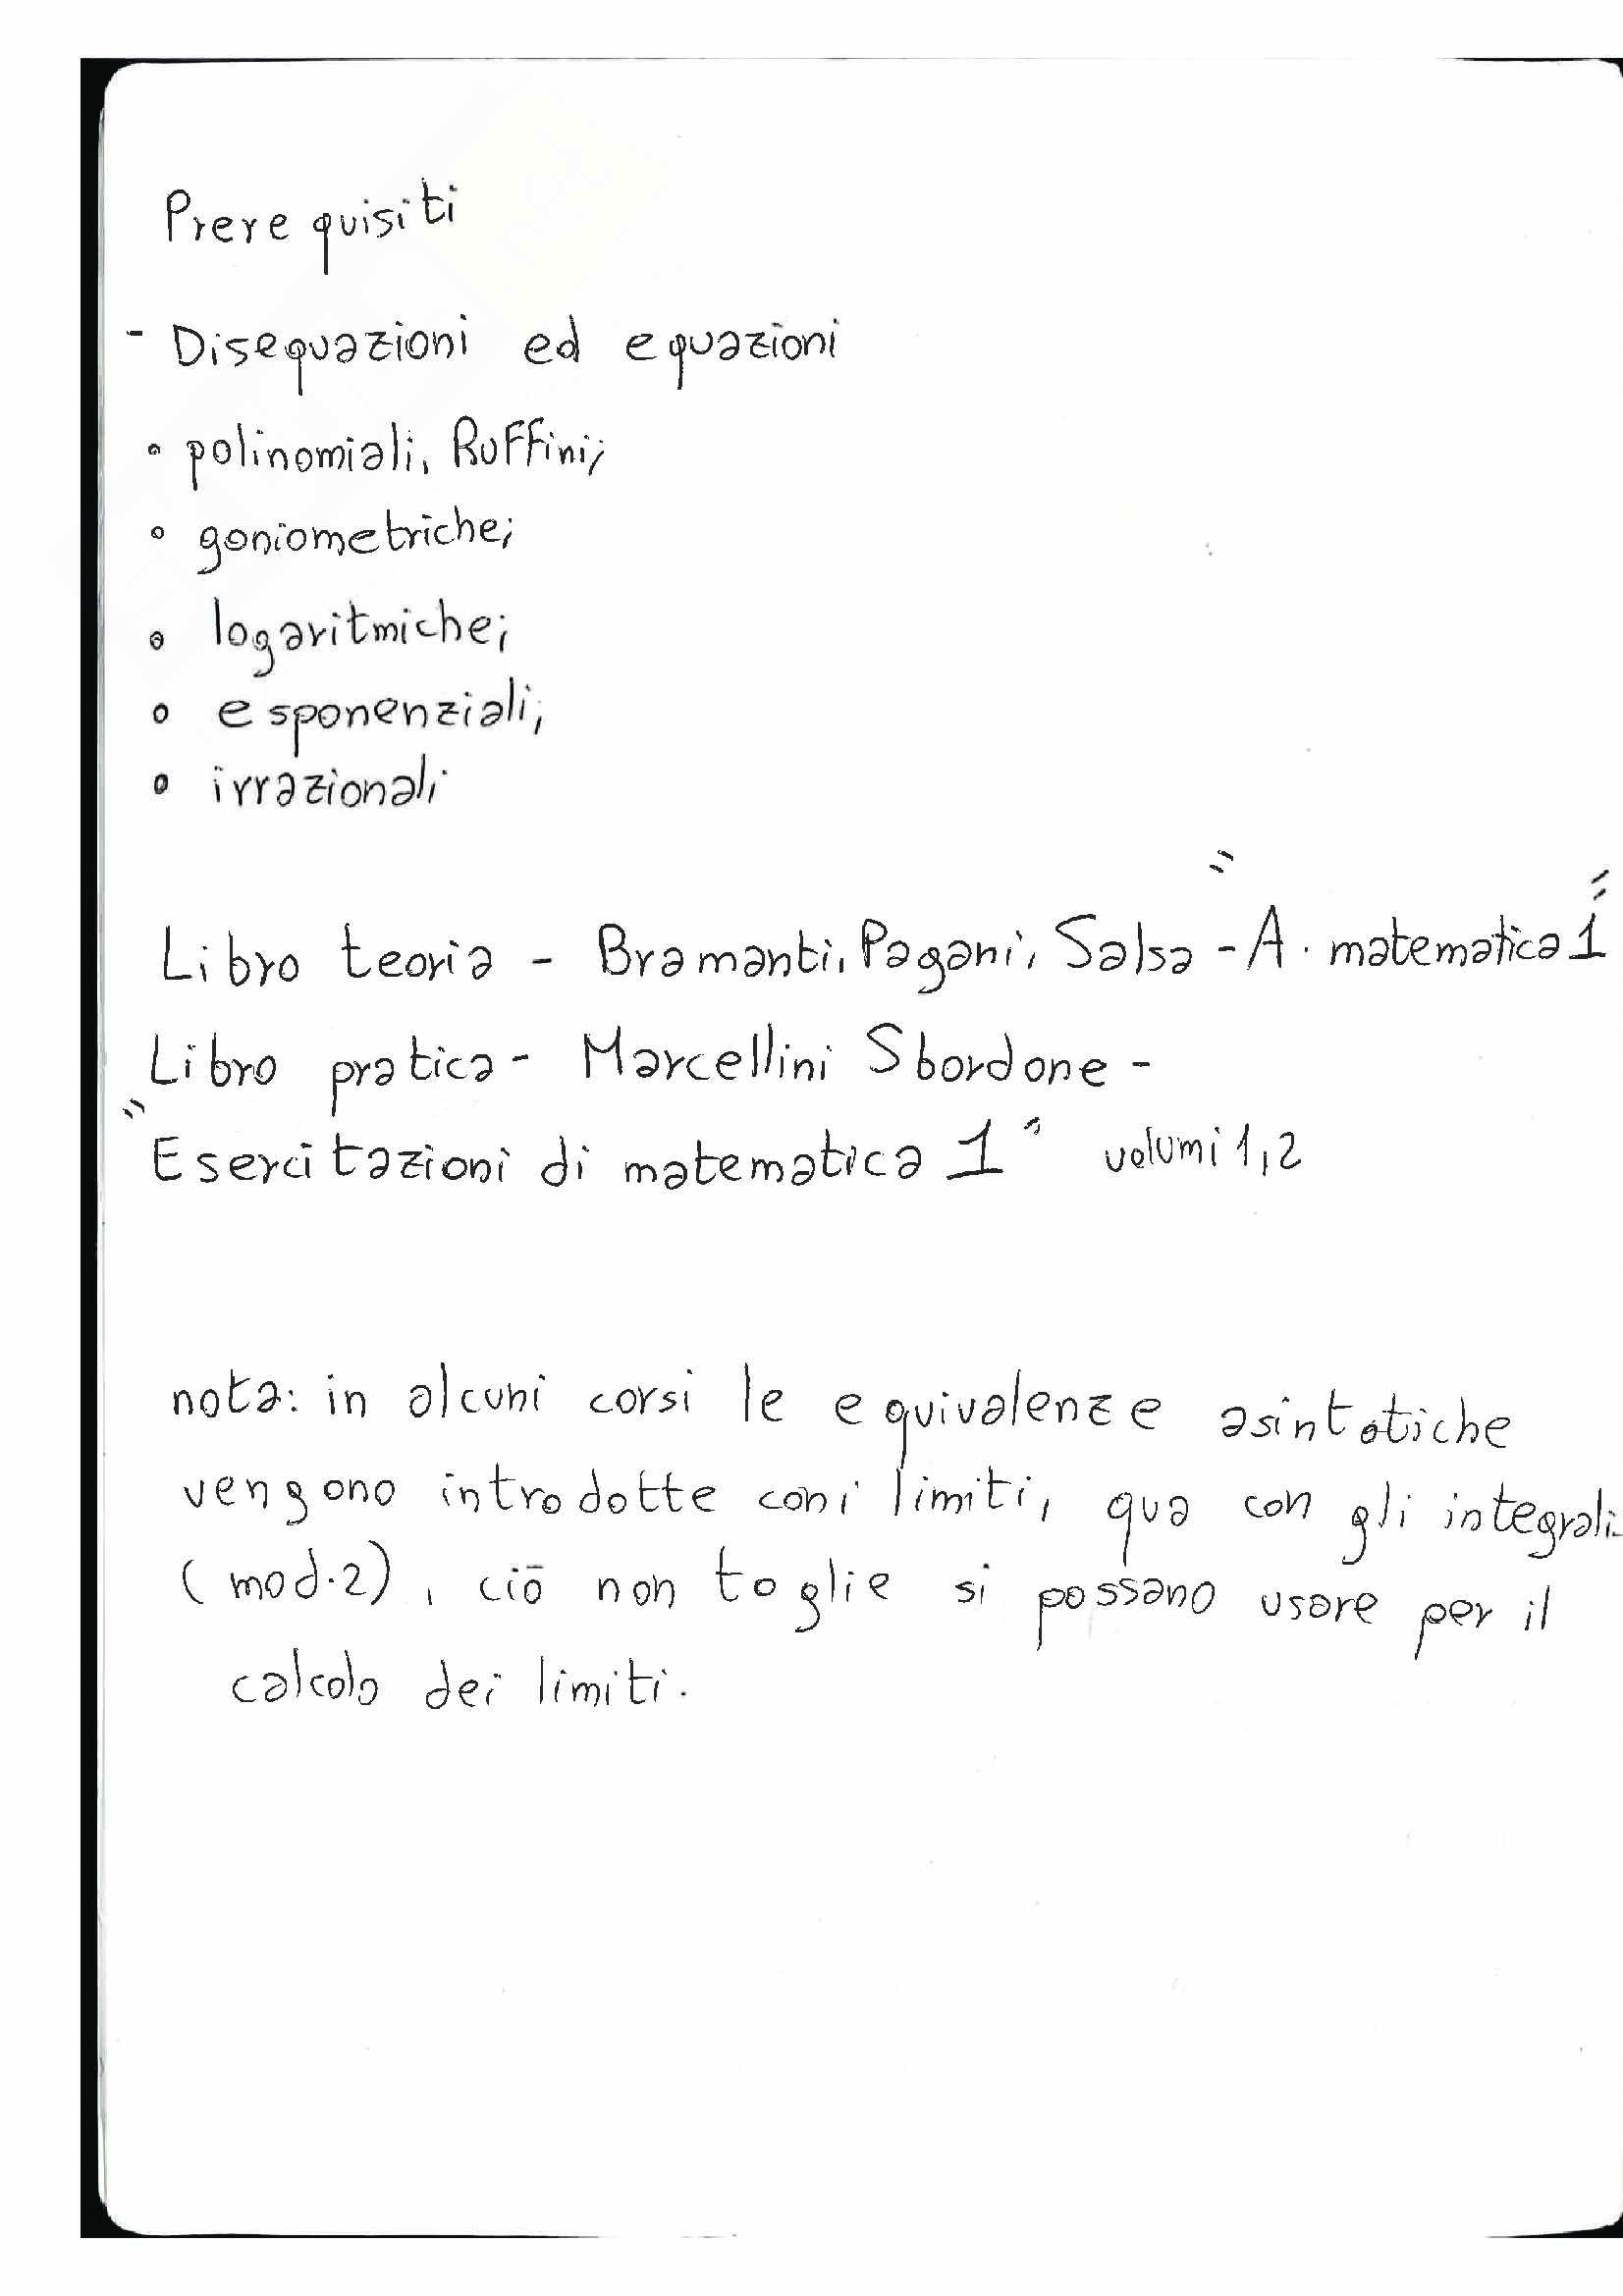 Prerequisiti
- Disequazioni ed equazioni
• polinomiali, Ruffini;
• goniometriche;
• logaritmiche;
• esponenziali;
• irrazionali
Libro teoria - Bramanti, Pagani, Salsa - "A. matematica 1"
Libro pratica - Marcellini Sbordone -
"Esercitazioni di matematica 1" volumi 1,2
nota: in alcuni corsi le equivalenze asintotiche
vengono introdotte con i limiti, qua con gli integrali
(mod.2), ciò non toglie si possano usare per il
calcolo dei limiti.